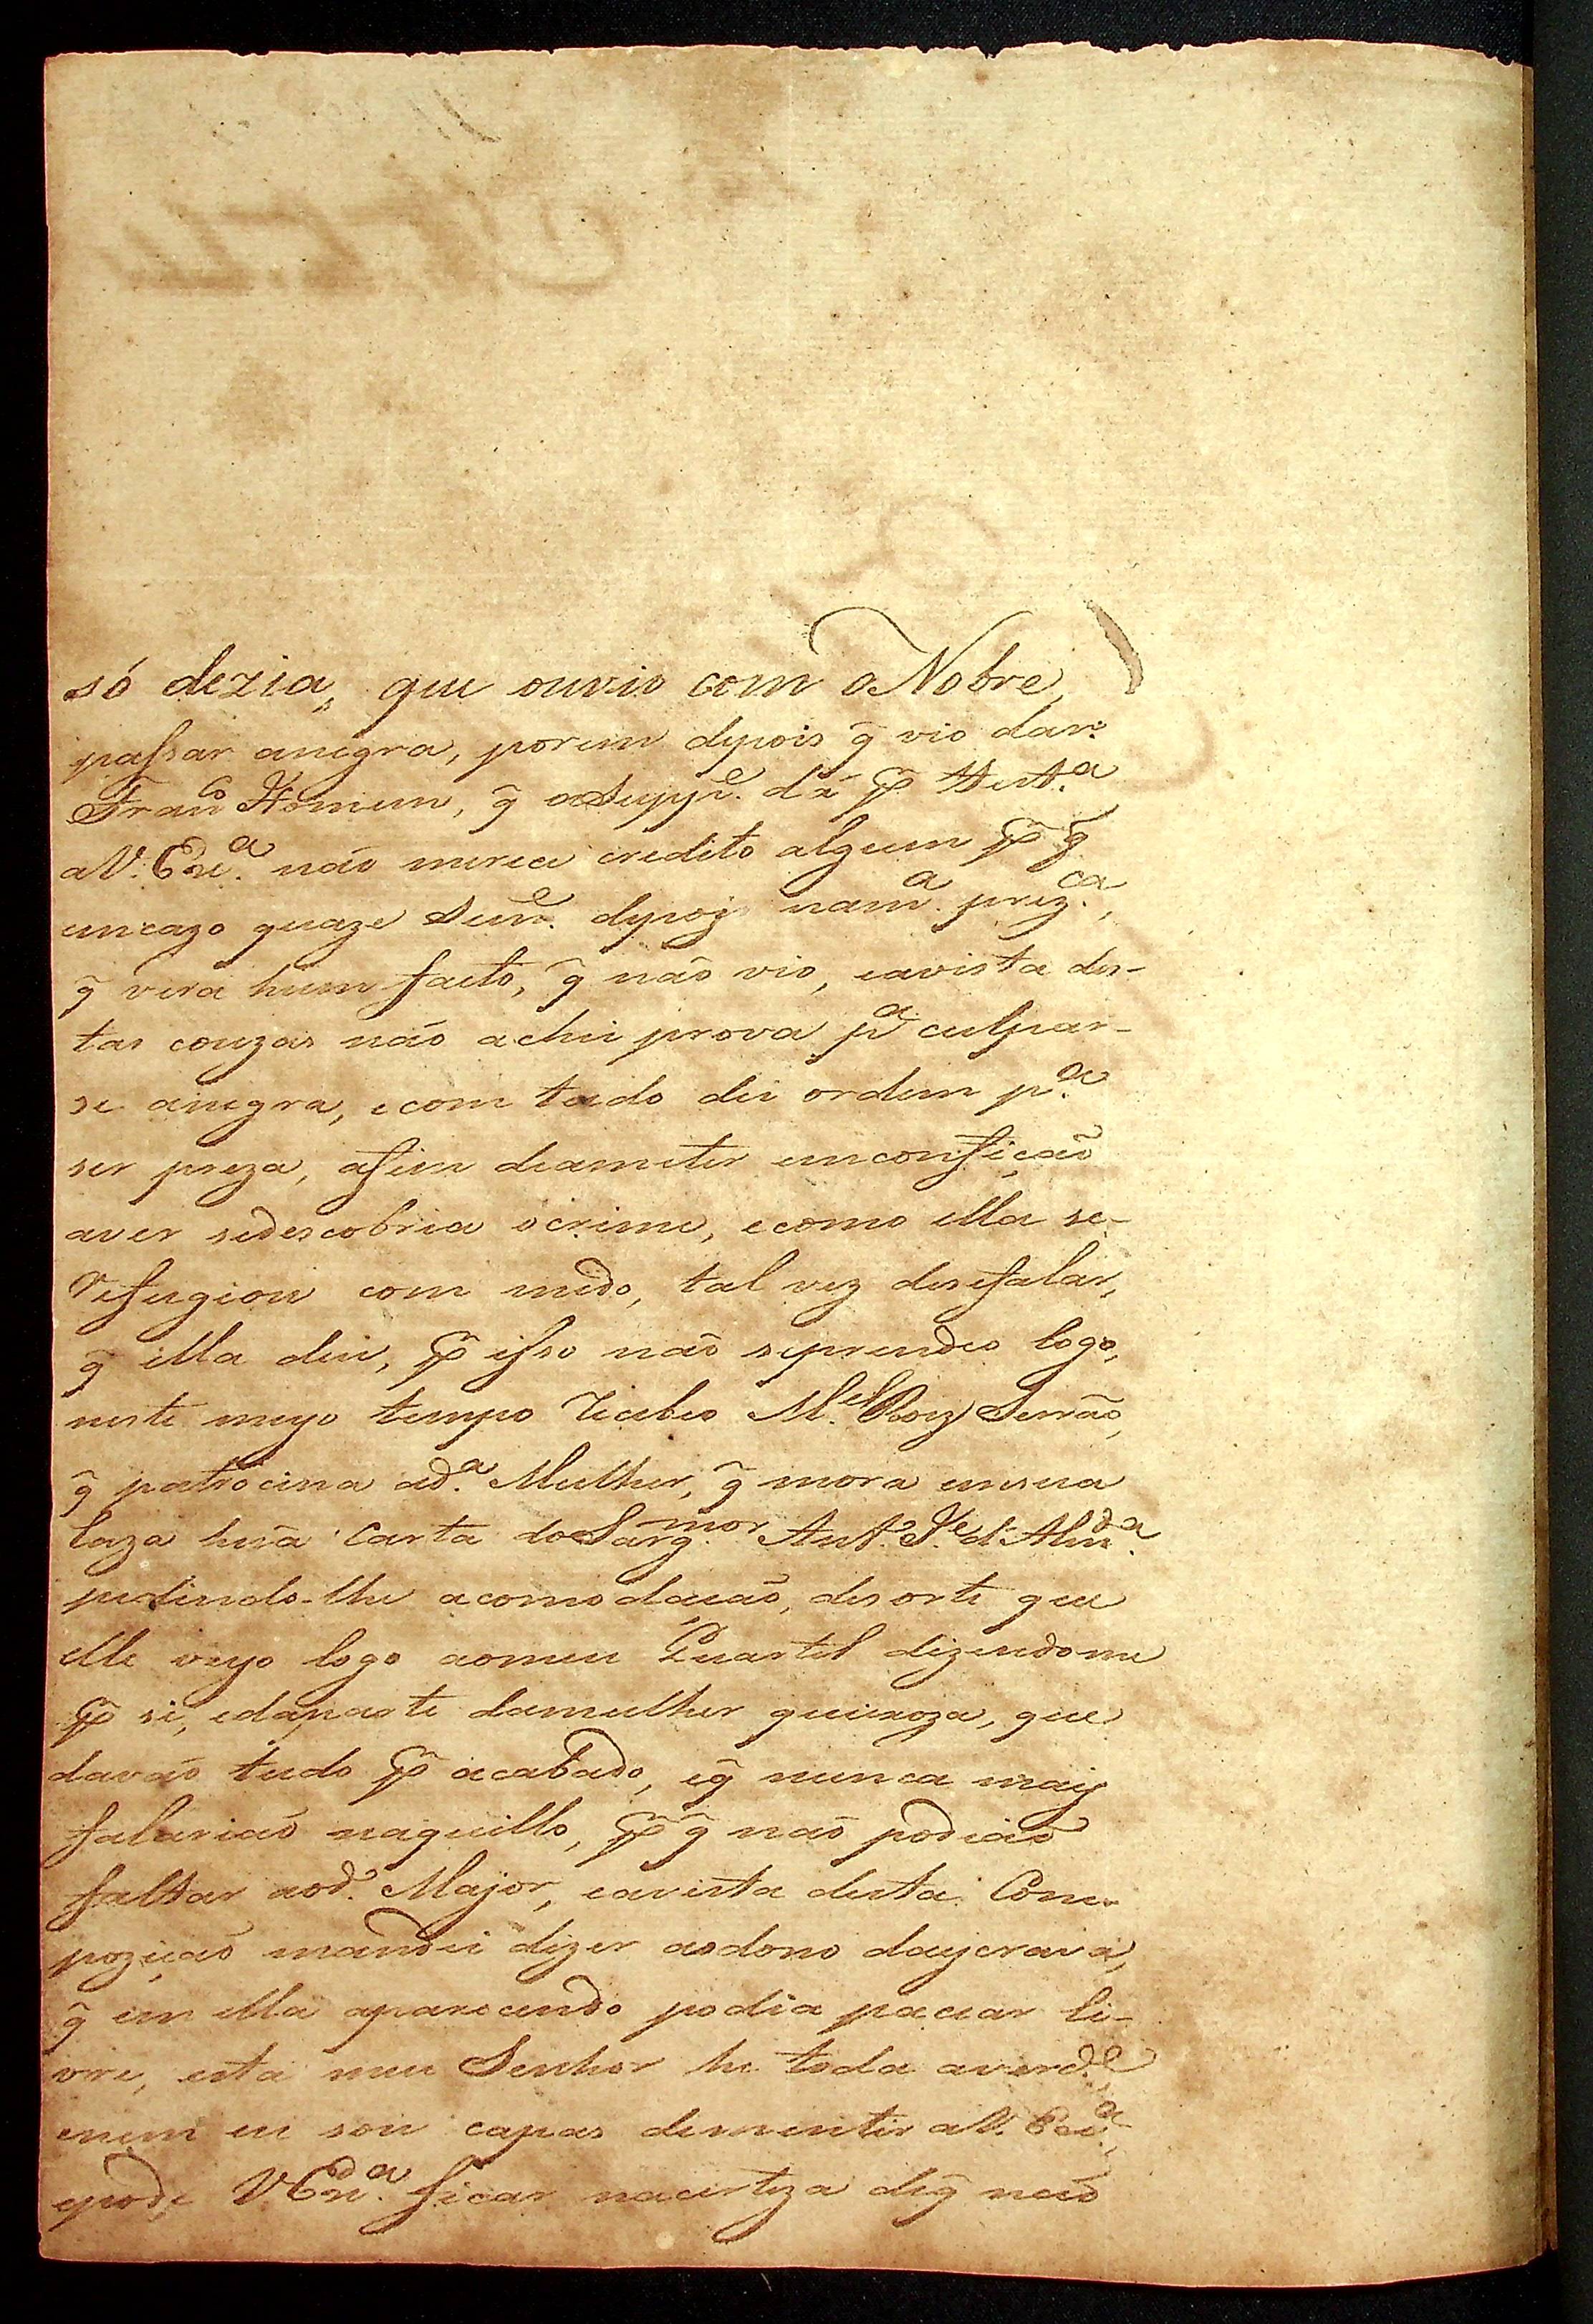 só dezia, que ouvio com o Nobre
passar anegra, porem depois q̃ vio dar
Fran.co Homem, q̃ o Supp.e dá p.r Test.a
aV. Ex.a não merece credito algum p.r q̃
emcazo quaze Sem.e depoz nam.a prez.ca,
q̃ vera hum facto, q̃ não vio, eavista des-
tas couzas não achei prova p.a culpar-
se anegra, ecom tudo dei ordem p.a
ser preza, afim deameter emconfição
aver sedescobria ocrime, ecomo ella se-
refugiou com medo, tal vez desefalar,
q̃ ella deu, p.r isso não seprendeo logo,
neste meyo tempo recebeo M.el Roiz Serrão,
q̃ patrocina ad.a Mulher, q̃ mora emsua
Caza huã Carta do Sarg.mor Ant.o J.e d'Alm.da
pedindo-lhe acomodacão, desorte que
elle veyo logo aomeu Quartel dizendome
p.r si, edaparte damulher queixoza, que
davão tudo p.r acabado, eq̃ nunca mais
falarião naquillo, p.r q̃ não podião
faltar aod.o Major, eavista desta Com-
pozição mandei dizer aodono daescrava,
q̃ em ella aparecendo podia pacear li-
vre, esta meu Senhor he toda averd.e
enem eu sou capas dementir aV. Ex.a,
epode V. Ex.a ficar nacerteza deq̃ não